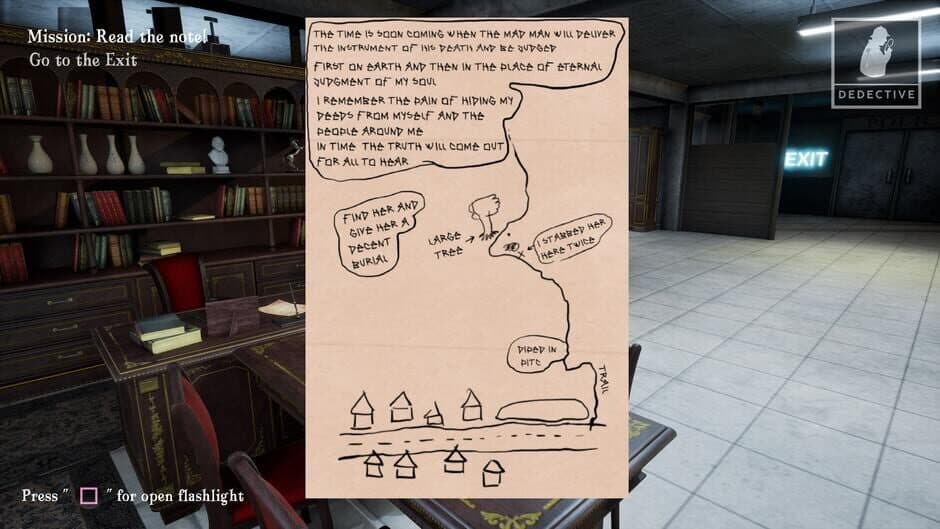 Mission: Read the note!
Go to the Exit
THE TIME IS SOON COMING WHEN THE MAD MAN WILL DELIVER
THE INSTRUMENT OF HIS DEATH AND BE JUDGED
FIRST ON EARTH AND THEN IN THE PLACE OF ETERNAL
JUDGMENT OF MY SOUL
I REMEMBER THE PAIN OF HIDING MY
DEEDS FROM MYSELF AND THE
PEOPLE AROUND ME
IN TIME THE TRUTH WILL COME OUT
FOR ALL TO HEAR
FIND HER AND
GIVE HER A
DECENT
BURIAL
LARGE
TREE
I STABBED HER
HERE TWICE
DIPED IN
DITC
TRAIL
DEDECTIVE
EXIT
Press " □ " for open flashlight